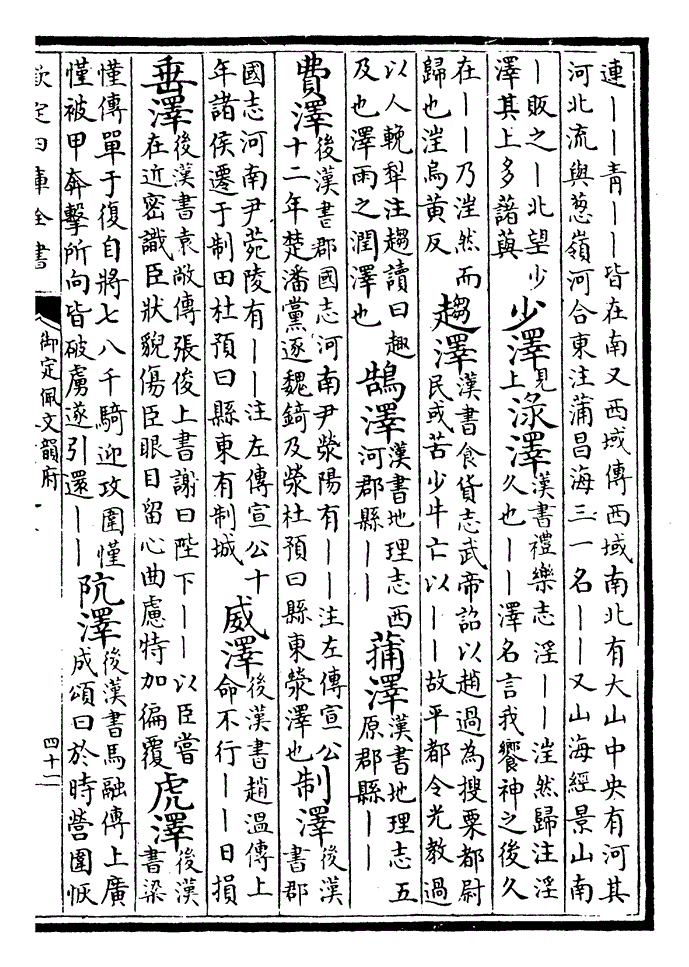 連丨丨青丨丨皆在南又西域傳西域南北有大山中央有河其
河北流與葱嶺河合東注蒲昌海三一名丨丨又山海經景山南
丨販之丨北望少
澤其上多藷藇
少澤
見
上
淥澤
漢書禮樂志淫丨丨澅然歸注淫
久也丨丨澤名言我饗神之後久
在丨丨乃澅然而
歸也澅烏黄反
趨澤
漢書食貨志武帝詔以趙過為搜粟都尉
民或苦少牛亡以丨丨故平都令光教過
以人輓犁注趨讀曰趣
及也澤雨之潤澤也
鵠澤
漢書地理志西
河郡縣丨丨
蒲澤
漢書地理志五
原郡縣丨丨
費澤
後漢書郡國志河南尹滎陽有丨丨注左傳宣公
十二年楚潘黨逐魏錡及滎杜預曰縣東滎澤也
制澤
後漢
書郡
國志河南尹菀陵有丨丨注左傳宣公十
年諸侯遷于制田杜預曰縣東有制城
威澤
後漢書趙溫傳上
命不行丨丨日損
垂澤
後漢書袁敞傳張俊上書謝曰陛下丨丨以臣嘗
在近密識臣狀貌傷臣眼目留心曲慮特加徧覆
虎澤
後漢
書梁
慬傳單于復自將七八千騎迎攻圍慬
慬被甲奔擊所向皆破虜遂引還丨丨
阬澤
後漢書馬融傳上廣
成頌曰於時營圍恢
欽定四庫全書
御定佩文韻府
四十二